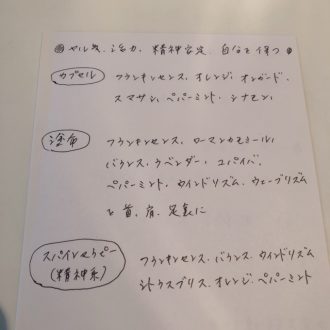 ◎ ヤル気、活力、精神安定、自分を保つ ◎
カプセル フランキンセンス、オレンジ、オンガード、
スマサシ、ペパーミント、シナモン、
塗布 フランキンセンス、ローマンカモミール、
バランス、ラベンダー、コパイバ、
ペパーミント、ウインドリズム、ウェーブリズム
を首、肩、足裏に
スパインセラピー フランキンセンス、バランス、ウインドリズム
(精神系) シトラスブリス、オレンジ、ペパーミント